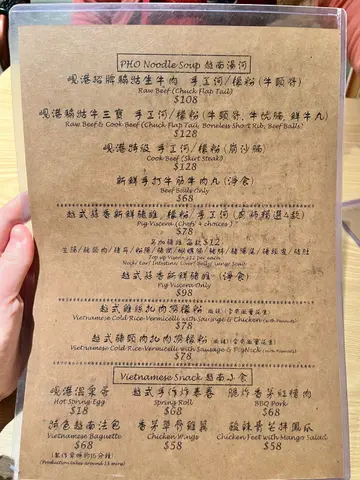 PHO Noodle Soup 越面湯河
峴港招牌脇拈生牛肉 手工河/檬粉 (牛頸脊)
Raw Beef (Chuck Flap Tail)
$108
峴港脇拈牛三寶 手工河/檬粉 (牛頸脊, 牛仸腩, 鮮牛丸)
Raw Beef & Cook Beef (Chuck Flap Tail, Boneless Short Rib, Beef Balls)
$128
峴港特級 手工河/檬粉 (崩沙腩)
Cook Beef (Skirt Steak)
$128
新鮮手打牛筋牛肉丸 (淨食)
Beef Balls Only
$68
越式蒜香新鮮豬雜, 檬粉/手工河 (廚師精選4款)
Pig Viscera (Chefs 4 choices)
$78
另加豬雜每款$12
Top up Viscera $12 per each
越式蒜香新鮮豬雜 (淨食)
Pig Viscera Only
$98
越式雞絲扎肉撈檬粉
Vietnamese Cold Rice-Vermicelli with Sausage & Chicken
$78
越式豬頸肉扎肉撈檬粉
Vietnamese Cold Rice-Vermicelli with Sausage & PigNeck
$78
Vietnamese Snack 越面小食
峴港溫泉蛋 越式手作炸春卷 脆炸香茅豬燒肉
Hot Spring Egg Spring Roll BBQ Pork
$18 $68 $68
頭包越面法包 香茅單骨雞翼 酸辣青芒拌鳳爪
Vietnamese Baguette Chicken Wings Chicken Feet with Mango Salad
$68 $58 $58
(製作需時約15分鐘)
(Production takes around 15 mins)